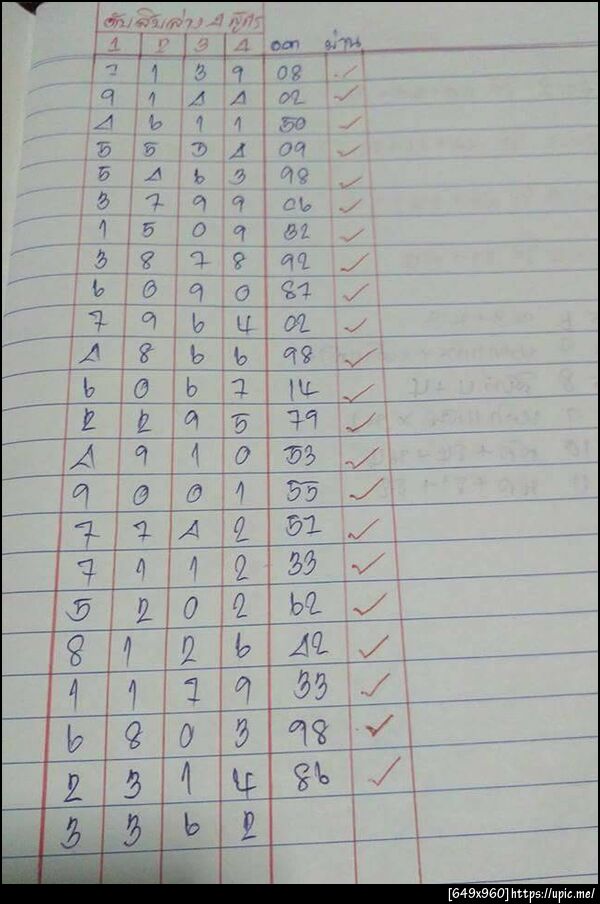 ดับสิบล่าง 4 สูตร
1 2 3 4 ออก ผ่าน
7 1 3 9 08 ✓
9 1 4 4 02 ✓
4 6 1 1 50 ✓
5 5 3 4 09 ✓
5 4 6 3 98 ✓
3 7 9 9 06 ✓
1 5 0 9 32 ✓
3 8 7 8 92 ✓
6 0 9 0 87 ✓
7 9 6 4 02 ✓
4 8 6 6 98 ✓
6 0 6 7 14 ✓
2 2 9 5 79 ✓
4 9 1 0 53 ✓
9 0 0 1 55 ✓
7 7 4 2 57 ✓
7 1 1 2 33 ✓
5 2 0 2 62 ✓
8 1 2 6 42 ✓
1 1 7 9 33 ✓
6 8 0 3 98 ✓
2 3 1 4 86 ✓
3 3 6 2
[649x960]https://upic.me/